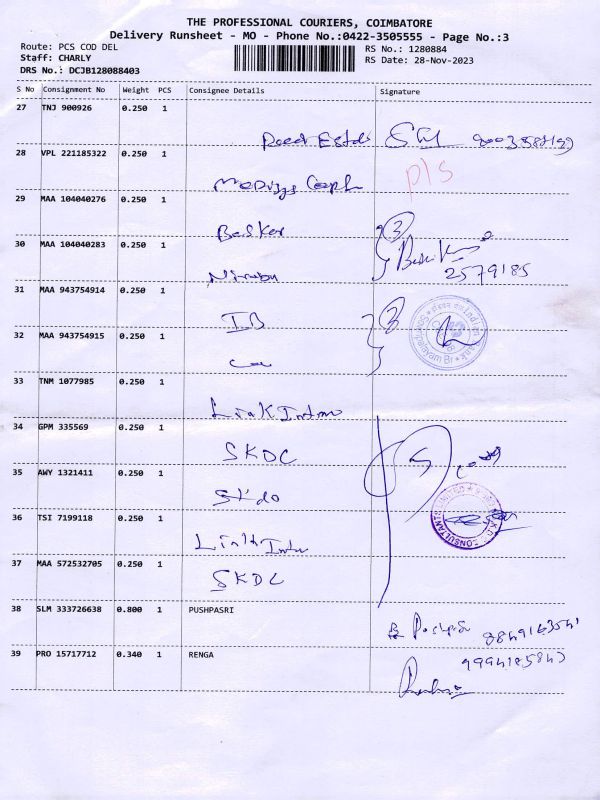 THE PROFESSIONAL COURIERS, COIMBATORE
Delivery Runsheet - MO - Phone No.:0422-3505555 - Page No.:3
Route: PCS COD DEL
RS No.: 1280884
Staff: CHARLY
RS Date: 28-Nov-2023
DRS No.: DCJB128088403
S No Consignment No Weight PCS Consignee Details Signature
27 TNJ 900926 0.250 1
28 VPL 221185322 0.250 1
pls
29 MAA 104040276 0.250 1
Baskar
30 MAA 104040283 0.250 1
3
2579185
31 MAA 943754914 0.250 1
IB
32 MAA 943754915 0.250 1
33 TNM 1077985 0.250 1
Link Intime
34 GPM 335569 0.250 1
SKDC
35 AWY 1321411 0.250 1
36 TSI 7199118 0.250 1
Link Intime
37 MAA 572532705 0.250 1
SKDC
38 SLM 333726638 0.800 1 PUSHPASRI
39 PRO 15717712 0.340 1 RENGA